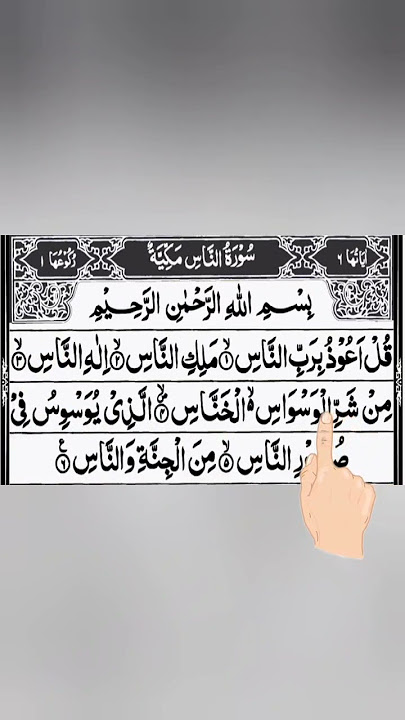 اٰيَاتُهَا ٦ سُوْرَةُ النَّاسِ مَكِّيَّةٌ رُكُوْعُهَا ١
بِسْمِ اللّٰهِ الرَّحْمٰنِ الرَّحِيْمِ
قُلْ اَعُوْذُ بِرَبِّ النَّاسِ ۙ‏﴿۱﴾ مَلِكِ النَّاسِ ۙ‏﴿۲﴾ اِلٰهِ النَّاسِ ۙ‏﴿۳﴾
مِنْ شَرِّ الْوَسْوَاسِ ۙ الْخَنَّاسِ ۙ‏﴿۴﴾ الَّذِيْ يُوَسْوِسُ فِيْ
النَّاسِ ۙ‏﴿۵﴾ مِنَ الْجِنَّةِ وَالنَّاسِ ‏﴿۶﴾ ع